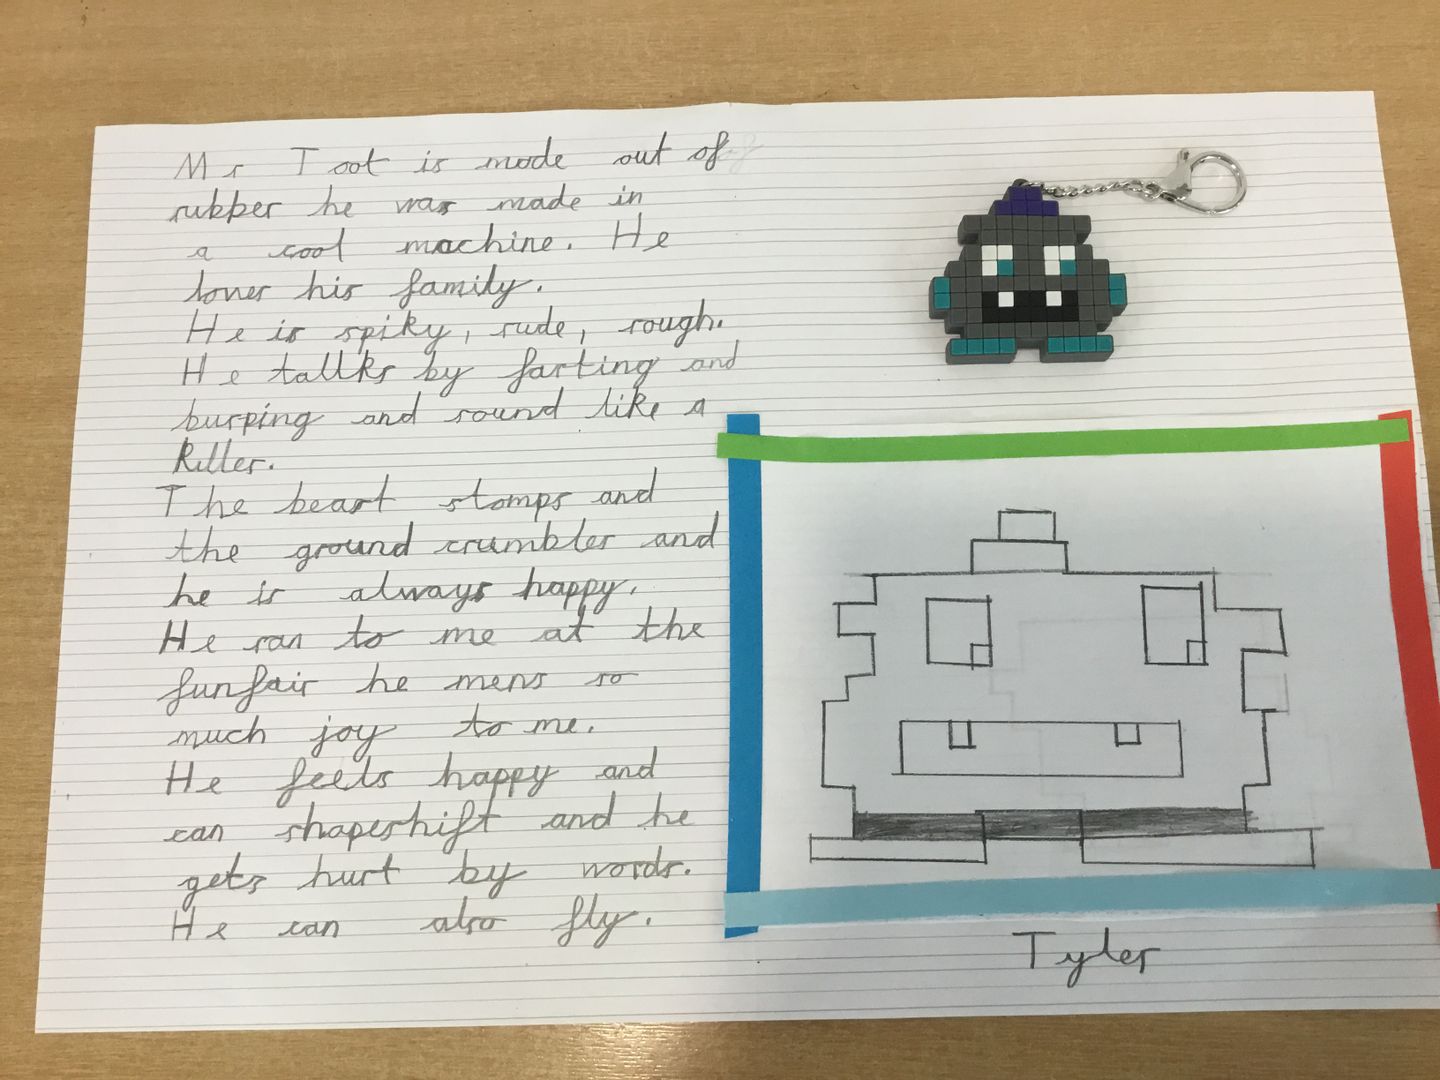 Mr Toot is made out of
rubber he was made in
a cool machine. He
loves his family.
He is spiky, rude, rough.
He tallks by farting and
burping and sound like a
killer.
The beast stomps and
the ground crumbles and
he is always happy.
He ran to me at the
funfair he mens so
much joy to me.
He feels happy and
can shapeshift and he
gets hurt by words.
He can also fly.
Tyler